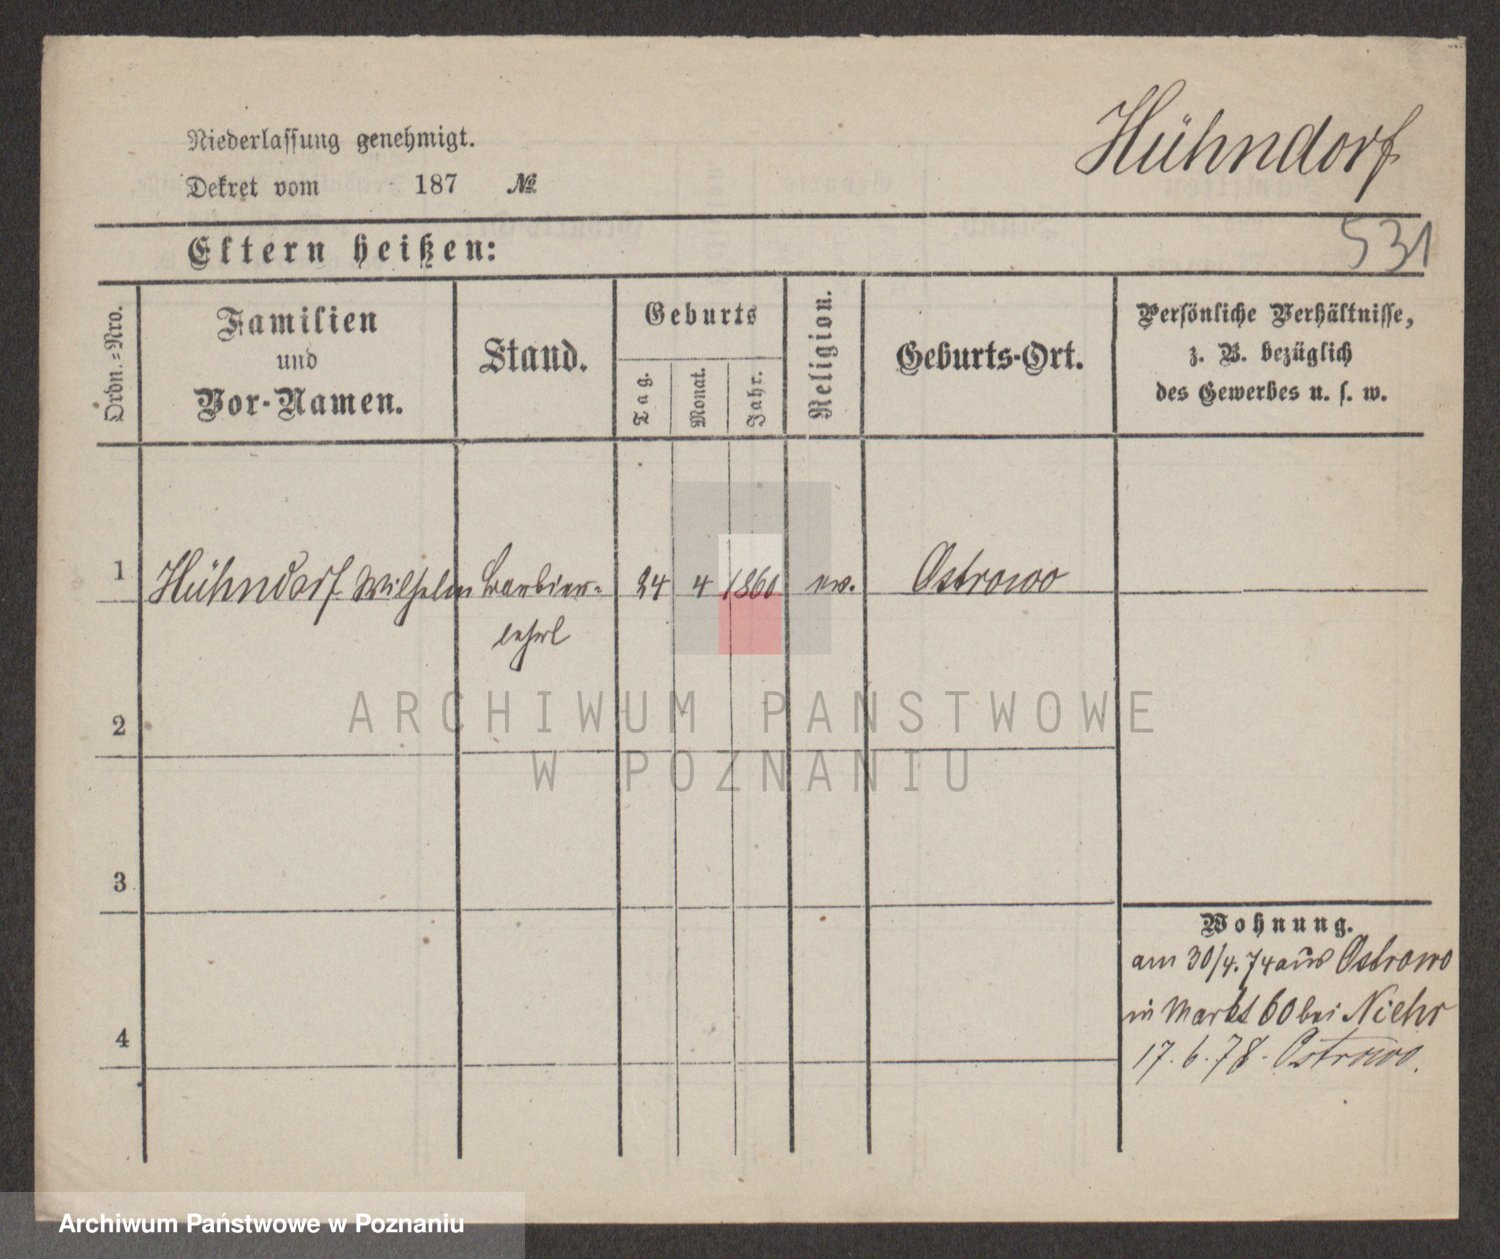 Niederlassung genehmigt.
Dekret vom 187 №
Hühndorf
531
Eltern heißen:
Ordn.-Nro.
Familien
und
Vor-Namen.
Stand.
Geburts
Tag.
Monat.
Jahr.
Religion.
Geburts-Ort.
Persönliche Verhältnisse,
z. B. bezüglich
des Gewerbes u. s. w.
1 Hühndorf Wilhelm Barbier- 24 4 1860 ev. Ostrowo
lehrl
2
ARCHIWUM PAŃSTWOWE
W POZNANIU
3
Wohnung.
am 30/4.74 aus Ostrowo
in Markt 60 bei Niehr
4
17.6.78. Ostrowo.
Archiwum Państwowe w Poznaniu